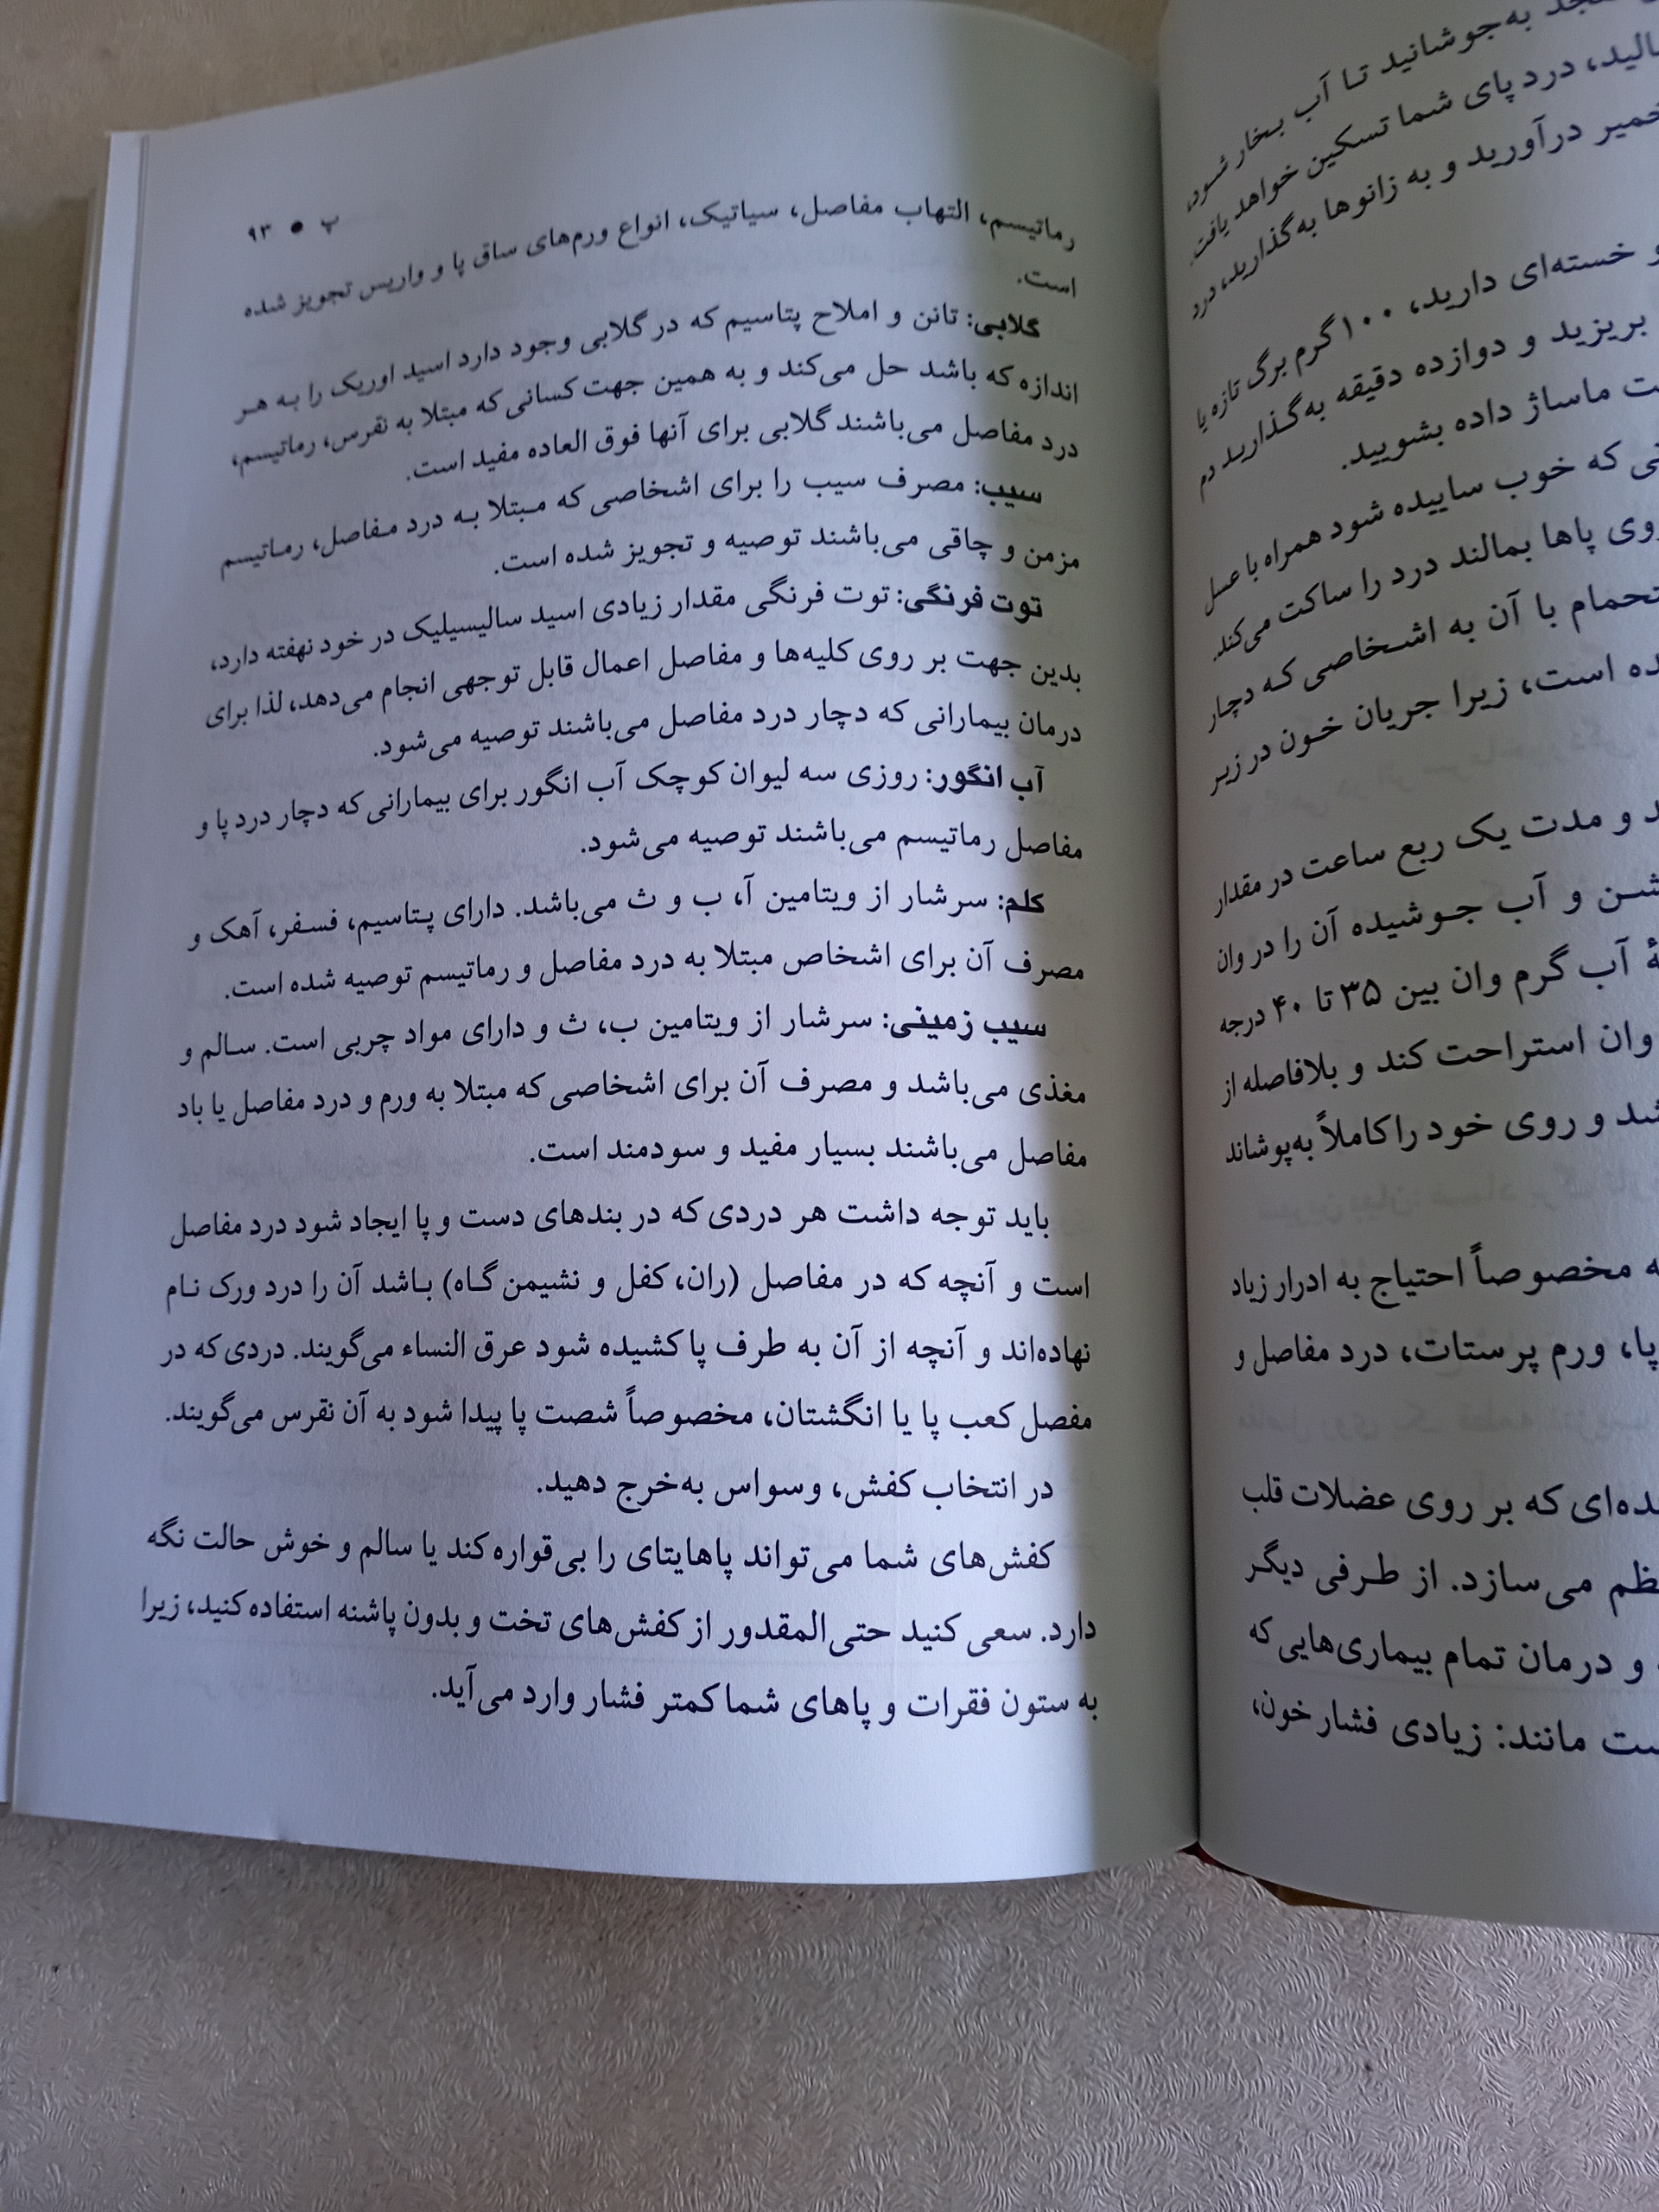 پ ● ۹۳
رماتیسم، التهاب مفاصل، سیاتیک، انواع ورم‌های ساق پا و واریس تجویز شده
است.
گلابی: تانن و املاح پتاسیم که در گلابی وجود دارد اسید اوریک را به هر
اندازه که باشد حل می‌کند و به همین جهت کسانی که مبتلا به نقرس، رماتیسم،
درد مفاصل می‌باشند گلابی برای آنها فوق العاده مفید است.
سیب: مصرف سیب را برای اشخاصی که مبتلا به درد مفاصل، رماتیسم
مزمن و چاقی می‌باشند توصیه و تجویز شده است.
توت فرنگی: توت فرنگی مقدار زیادی اسید سالیسیلیک در خود نهفته دارد،
بدین جهت بر روی کلیه‌ها و مفاصل اعمال قابل توجهی انجام می‌دهد، لذا برای
درمان بیمارانی که دچار درد مفاصل می‌باشند توصیه می‌شود.
آب انگور: روزی سه لیوان کوچک آب انگور برای بیمارانی که دچار درد پا و
مفاصل رماتیسم می‌باشند توصیه می‌شود.
کلم: سرشار از ویتامین آ، ب و ث می‌باشد. دارای پتاسیم، فسفر، آهک و
مصرف آن برای اشخاص مبتلا به درد مفاصل و رماتیسم توصیه شده است.
سیب زمینی: سرشار از ویتامین ب، ث و دارای مواد چربی است. سالم و
مغذی می‌باشد و مصرف آن برای اشخاصی که مبتلا به ورم و درد مفاصل یا باد
مفاصل می‌باشند بسیار مفید و سودمند است.
باید توجه داشت هر دردی که در بندهای دست و پا ایجاد شود درد مفاصل
است و آنچه که در مفاصل (ران، کفل و نشیمن گاه) باشد آن را درد ورک نام
نهاده‌اند و آنچه از آن به طرف پا کشیده شود عرق النساء می‌گویند. دردی که در
مفصل کعب پا یا انگشتان، مخصوصاً شصت پا پیدا شود به آن نقرس می‌گویند.
در انتخاب کفش، وسواس به‌خرج دهید.
کفش‌های شما می‌تواند پاهایتای را بی‌قواره کند یا سالم و خوش حالت نگه
دارد. سعی کنید حتی‌المقدور از کفش‌های تخت و بدون پاشنه استفاده کنید، زیرا
به ستون فقرات و پاهای شما کمتر فشار وارد می‌آید.
به‌جوشانید تا آب بخار شود،
درد پای شما تسکین خواهد یافت.
درآورید و به زانوها به‌گذارید، درد
و خسته‌ای دارید، ۱۰۰ گرم برگ تازه یا
بریزید و دوازده دقیقه به‌گذارید دم
ماساژ داده بشویید.
که خوب ساییده شود همراه با عسل
روی پاها بمالند درد را ساکت می‌کند.
با آن به اشخاصی که دچار
است، زیرا جریان خون در زیر
و مدت یک ربع ساعت در مقدار
و آب جوشیده آن را در وان
آب گرم وان بین ۳۵ تا ۴۰ درجه
وان استراحت کند و بلافاصله از
و روی خود را کاملاً به‌پوشاند
مخصوصاً احتیاج به ادرار زیاد
پا، ورم پرستات، درد مفاصل و
که بر روی عضلات قلب
می‌سازد. از طرفی دیگر
و درمان تمام بیماری‌هایی که
مانند: زیادی فشار خون،